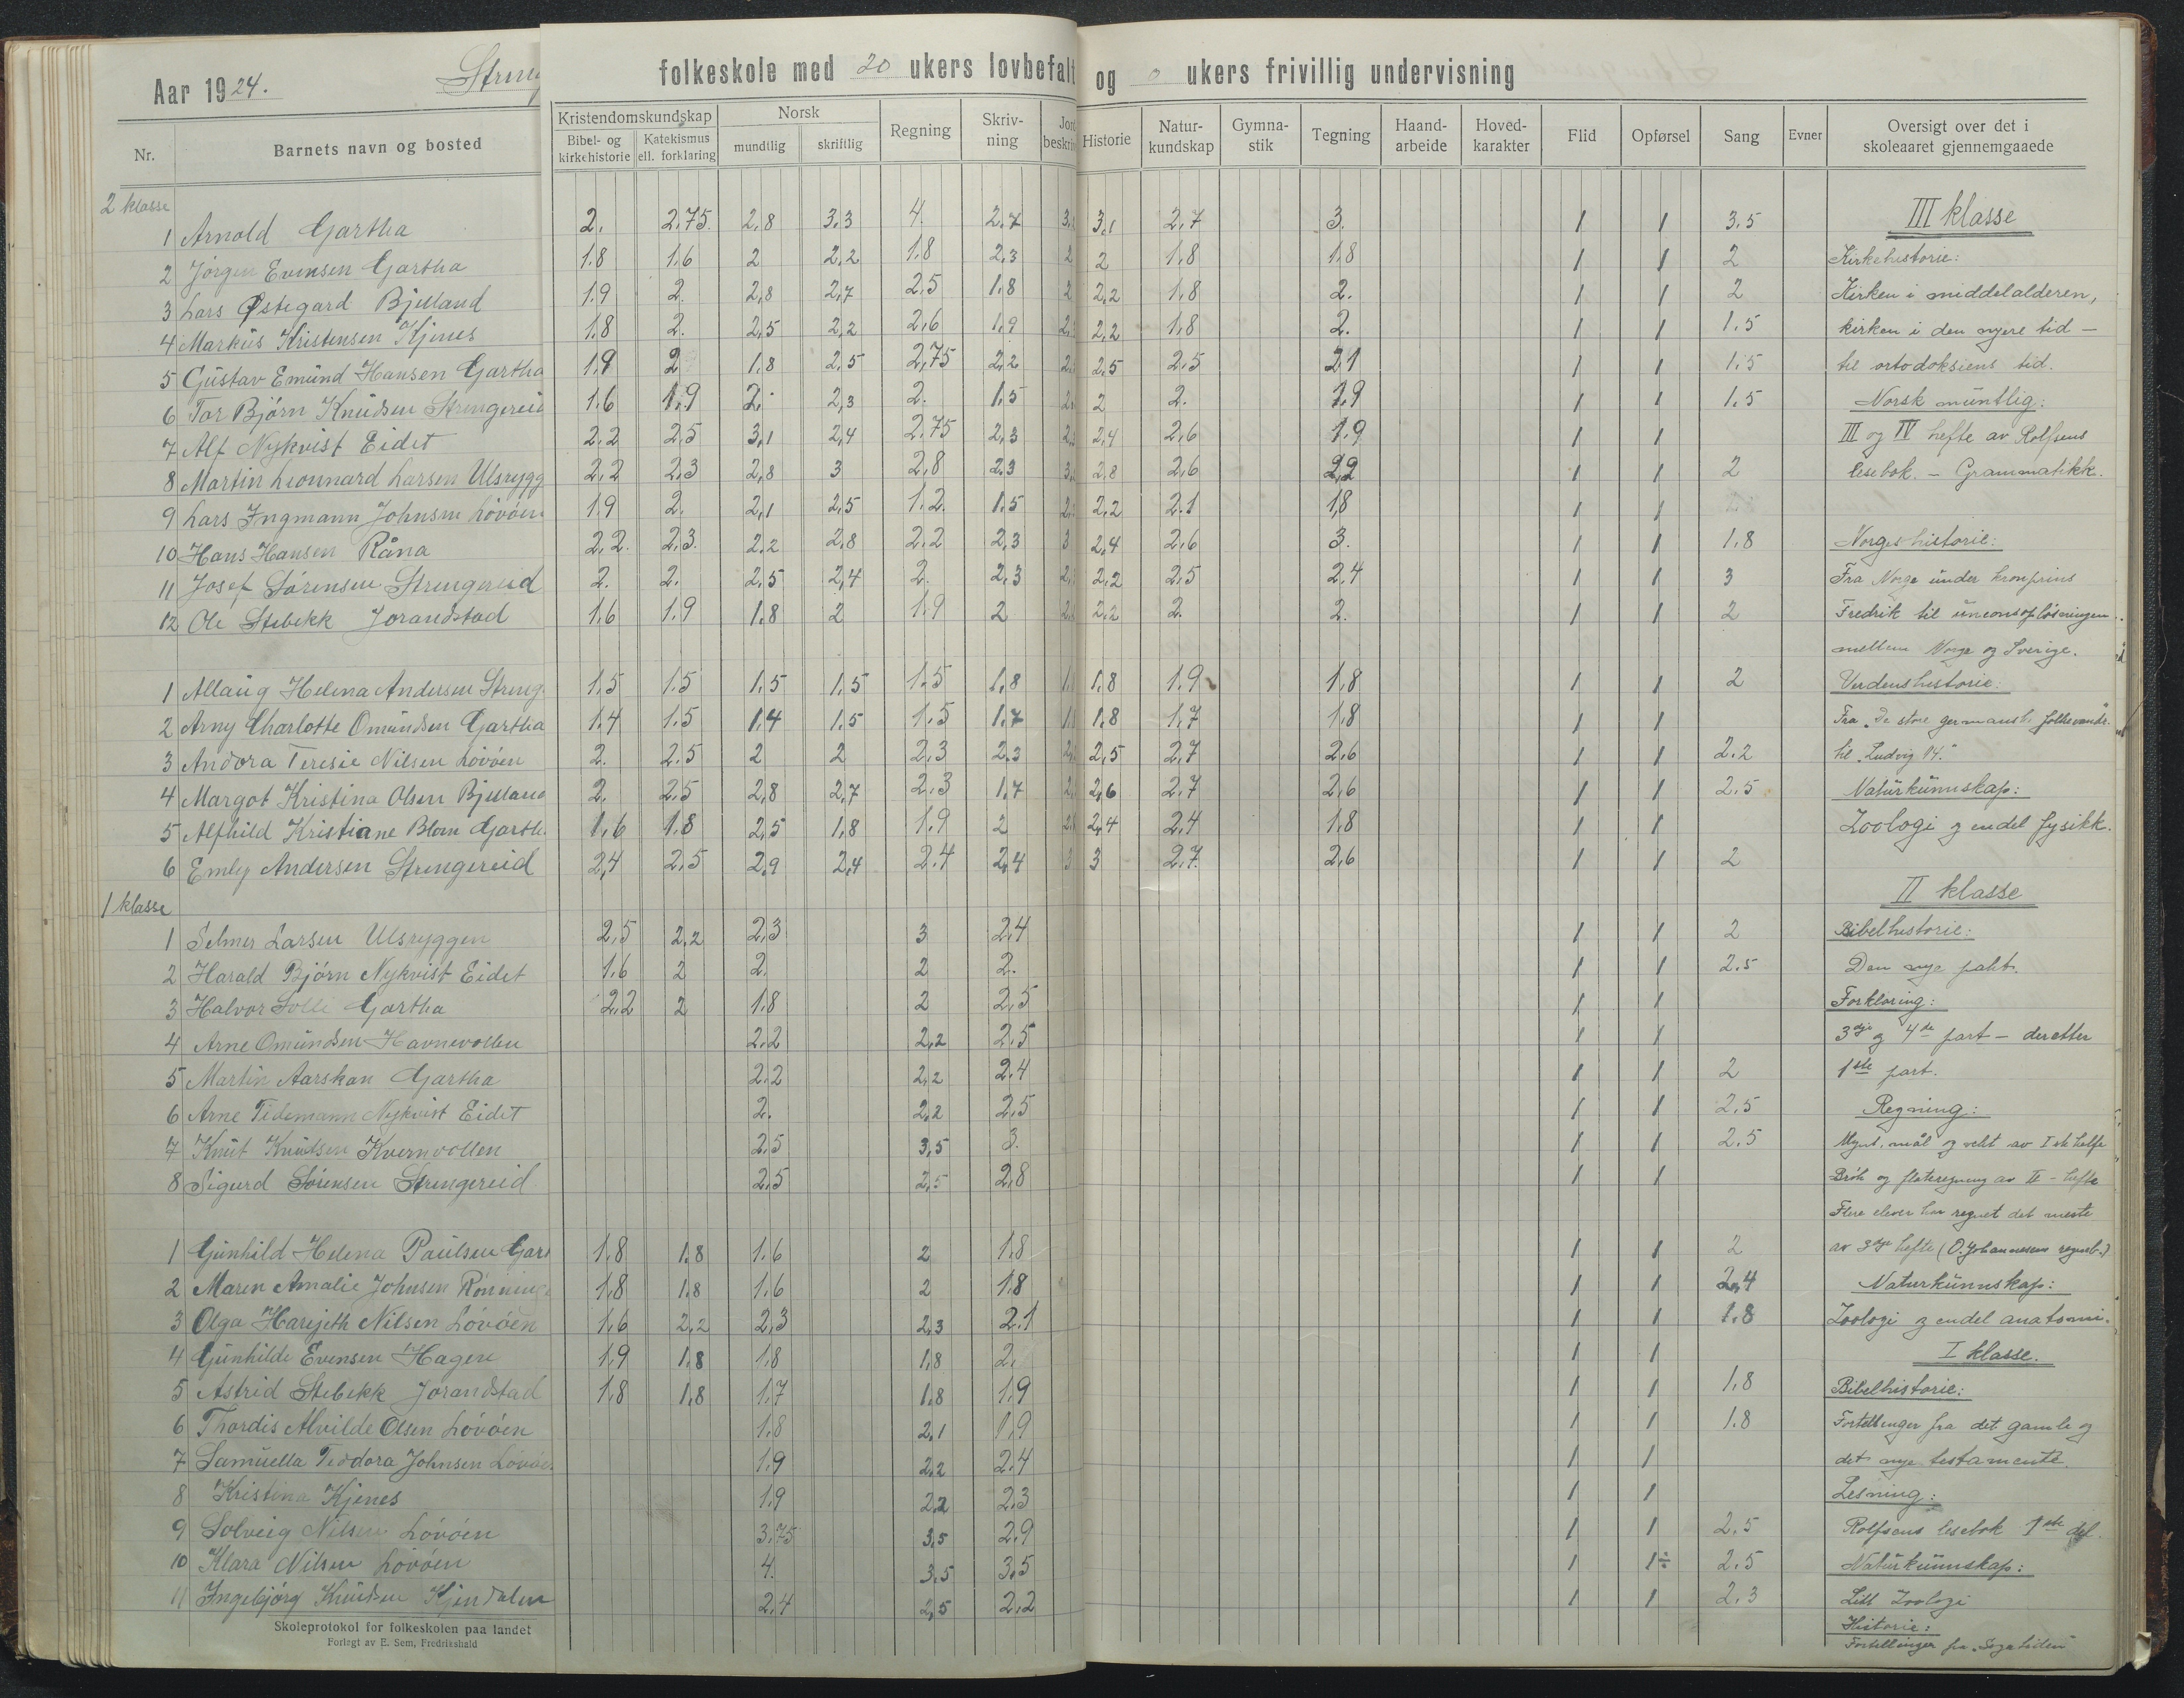 Aar 1924.
folkeskole med 20 ukers lovbefalt og 0 ukers frivillig undervisning
Nr. Barnets navn og bosted Kristendomskundskap Norsk Regning Skriv-ning Historie Natur-kundskap Gymna-stik Tegning Haand-arbeide Hoved-karakter Flid Opførsel Sang Evner Oversigt over det i skoleaaret gjennemgaaede
Bibel- og kirkehistorie Katekismus ell. forklaring mundtlig skriftlig
2 klasse
1 Arnold Gartha 2. 2.75. 2,8 3.3 4. 2.7 3,1 2.7 3. 1 1 3.5 III klasse
2 Jörgen Evensen Gartha 1.8 1.6 2 2,2 1.8 2.3 2 2 1,8 1.8 1 1 2 Kirkehistorie:
3 Lars Østegard Bjelland 1.9 2. 2,8 2,7 2.5 1.8 2 2,2 1,8 2. 1 1 2 Kirken i middelalderen,
4 Markus Kristensen Kjenes 1.8 2. 2,5 2,2 2,6 1,9 2,2 1,8 2. 1 1 1.5 kirken i den nyere tid -
5 Gustav Emund Hansen Gartha 1.9 2 1.8 2,5 2,75 2,2 2,5 2.5 2.1 1 1 1.5 til ortodoksiens tid.
6 Tor Björn Knudsen Strengereid 1.6 1.9 2. 2,3 2. 1.5 2 2. 1.9 1 1 1.5 Norsk muntlig:
7 Alf Nykvist Eidet 2.2 2.5 3,1 2,4 2.75 2,3 2,4 2,6 1.9 1 1 III og IV hefte av Rolfsens
8 Martin Leonnard Larsen Ulsrygg 2,2 2,3 2,8 3 2,8 2.3 2,8 2,6 2,2 1 1 2 lesebok. - Grammatikk.
9 Lars Ingmann Johnsen Lövöen 1.9 2. 2,1 2,5 1.2. 1.5 2,2 2.1 1,8 1 1
10 Hans Hansen Råna 2,2. 2,3. 2.2 2,8 2.2 2,3 3 2,4 2,6 3. 1 1 1.8 Norgeshistorie:
11 Josef Sörensen Strengereid 2. 2. 2,5 2,4 2. 2,3 2,2 2,5 2,4 1 1 3 Fra Norge under kronprins
12 Ole Stebekk Jorandstad 1.6 1.9 1.8 2 1.9 2 2,2 2. 2. 1 1 2 Fredrik til unionsoplösningen
mellem Norge og Sverige.
1 Allaug Helena Andersen Streng. 1.5 1.5 1.5 1,5 1.5 1,8 1,8 1.9 1,8 1 1 2 Verdenshistorie:
2 Arny Charlotte Omundsen Gartha 1.4 1.5 1,4 1.5 1.5 1.7 1,8 1,7 1,8 1 1 Fra "De store germansk. folkevandr.
3 Andora Teresie Nilsen Lövöen 2. 2.5 2 2 2,3 2.3 2,5 2,7 2,6 1 1 2.2 til "Ludvig 14."
4 Margot Kristina Olsen Bjelland 2. 2.5 2,8 2,7 2.3 1.7 2,6 2,7 2,6 1 1 2.5 Naturkunnskap:
5 Alfhild Kristiane Blom Garth. 1,6 1.8 2,5 1,8 1.9 2 2,4 2.4 1.8 1 1 Zoologi og endel fysikk.
6 Emly Andersen Strengereid 2,4 2,5 2,9 2,4 2.4 2,4 3 3 2,7. 2,6 1 1 2
1 klasse II klasse
1 Selmer Larsen Ulsryggen 2,5 2,2 2,3 3 2,4 1 1 2 Bibelhistorie:
2 Harald Björn Nykvist Eidet 1.6 2 2. 2 2. 1 1 2.5 Den nye pakt.
3 Halvor Solli Gartha 2.2 2 1.8 2 2,5 1 1 Forklaring:
4 Arne Omundsen Havnevollen 2.2 2,2 2.5 1 1 3dje og 4de part - deretter
5 Martin Aarskan Gartha 2.2 2,2 2.4 1 1 2 1ste part.
6 Arne Tidemann Nykvist Eidet 2. 2,2 2.5 1 1 2.5 Regning:
7 Knut Knudsen Kvernvollen 2.5 3,5 3. 1 1 2.5 Mynt, mål og vekt av I ste hefte
8 Sigurd Sörensen Strengereid 2.5 2,5 2,8 1 1 Brök og flateregning av II - hefte
Flere elever har regnet det meste
1 Gunhild Helena Paulsen Gart 1.8 1.8 1.6 2 1.8 1 1 2 av 3dje hefte (O. Johannesens regneb.)
2 Maren Amalie Johnsen Rönning 1,8 1.8 1.6 2 1.8 1 1 2,4 Naturkunnskap:
3 Olga Harijeth Nilsen Lövöen 1.6 2,2 2,3 2,3 2.1 1 1 1.8 Zoologi og endel anatomi.
4 Gunhilde Evensen Hagen 1.9 1.8 1.8 1.8 2. 1 1 I klasse.
5 Astrid Stebekk Jorandstad 1.8 1,8 1.7 1.8 1.9 1 1 1,8 Bibelhistorie:
6 Thordis Alvilde Olsen Lövöen 1.8 2,1 1,9 1 1 1.8 Fortellinger fra det gamle og
7 Samuella Teodora Johnsen Lövöen 1.9 2,2 2.4 1 1 det nye testamente.
8 Kristina Kjenes 1.9 2.2 2.3 1 1 Lesning:
9 Solveig Nilsen Lövöen 3.75 3,5 2.9 1 1 2.5 Rolfsens lesebok 1ste del.
10 Klara Nilsen Lövöen 4. 3.5 3,5 1 1÷ 2.5 Naturkunnskap:
11 Ingebjörg Knudsen Kjendalen 2,4 2,5 2,2 1 1 2.3 Litt Zoologi
Historie:
Fortellinger fra "Sagatiden"
Skoleprotokol for folkeskolen paa landet
Forlagt av E. Sem, Fredrikshald